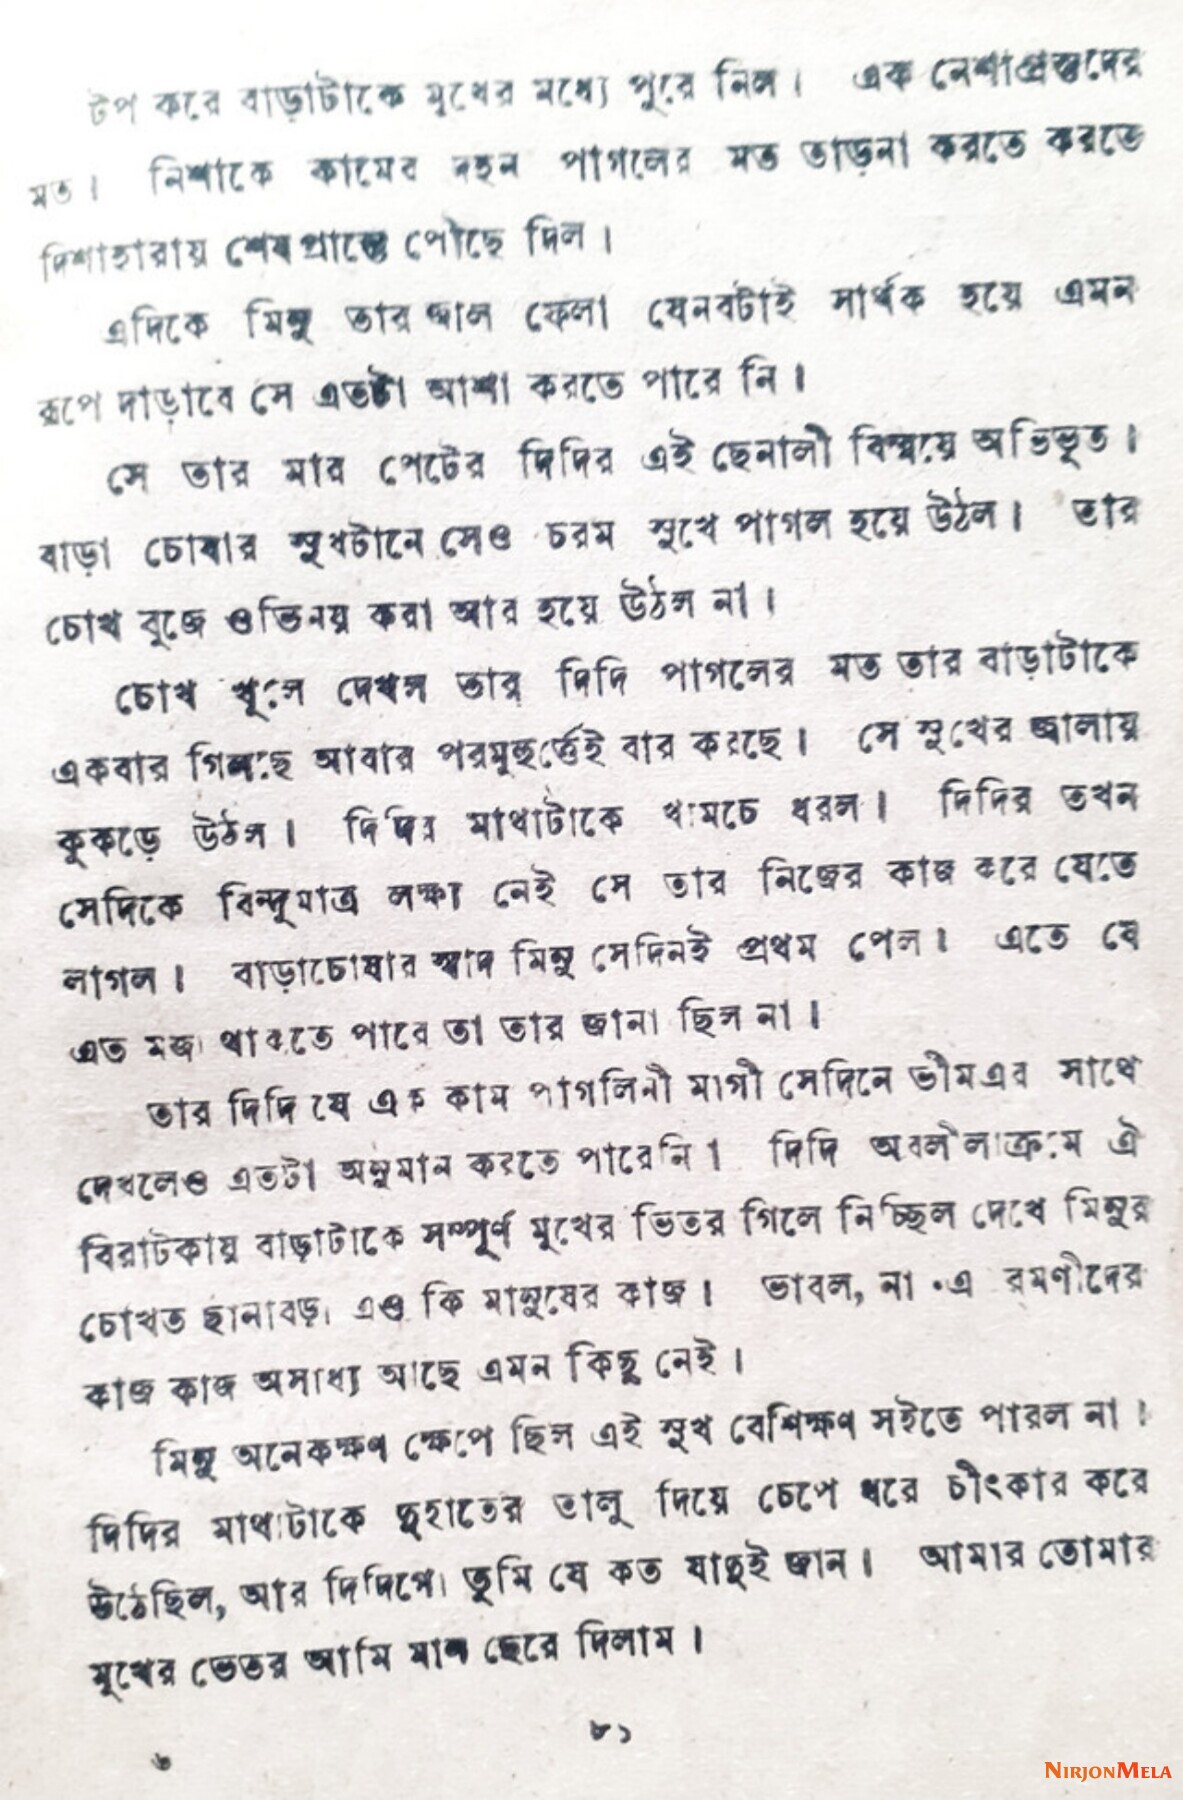 টপ করে বাড়াটাকে মুখের মধ্যে পুরে নিল। এক নেশাগ্রস্তদের
মত। নিশাকে কামের দহন পাগলের মত তাড়না করতে করতে
দিশাহারায় শেষ প্রান্তে পৌছে দিল।
এদিকে মিন্সু তার জাল ফেলা যেনবটাই সার্থক হয়ে এমন
রূপে দাড়াবে সে এতটা আশা করতে পারে নি।
সে তার মার পেটের দিদির এই ছেনালী বিস্ময়ে অভিভূত।
বাড়া চোষার সুখটানে সেও চরম সুখে পাগল হয়ে উঠল। তার
চোখ বুজে ওভিনয় করা আর হয়ে উঠল না।
চোখ খুলে দেখল তার দিদি পাগলের মত তার বাড়াটাকে
একবার গিলছে আবার পরমুহুর্ত্তেই বার করছে। সে সুখের জ্বালায়
কুকড়ে উঠল। দিদির মাথাটাকে খামচে ধরল। দিদির তখন
সেদিকে বিন্দুমাত্র লক্ষ্য নেই সে তার নিজের কাজ করে যেতে
লাগল। বাড়াচোষার স্বাদ মিন্সু সেদিনই প্রথম পেল। এতে যে
এত মজা থাকতে পারে তা তার জানা ছিল না।
তার দিদি যে এক কাম পাগলিনী মাগী সেদিনে ভীমএর সাথে
দেখলেও এতটা অনুমান করতে পারেনি। দিদি অবলীলাক্রমে ঐ
বিরাটকায় বাড়াটাকে সম্পূর্ণ মুখের ভিতর গিলে নিচ্ছিল দেখে মিন্সুর
চোখত ছানাবড়া এও কি মানুষের কাজ। ভাবল, না এ রমণীদের
কাজ কাজ অসাধ্য আছে এমন কিছু নেই।
মিন্সু অনেকক্ষণ ক্ষেপে ছিল এই সুখ বেশিক্ষণ সইতে পারল না।
দিদির মাথাটাকে দুহাতের তালু দিয়ে চেপে ধরে চীৎকার করে
উঠেছিল, আর দিদিগো তুমি যে কত যাদুই জান। আমার তোমার
মুখের ভেতর আমি মাল ছেরে দিলাম।
৮১
৬
NIRJONMELA